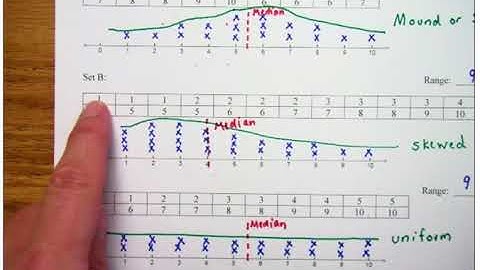 Median
Mound or
0 1 2 3 4 5 6 7 8 9 10
Set B:
Range: 9
1 1 2 2 2 2 3 3 3 3 4
5 5 6 6 6 7 7 8 8 9 10
Median
skewed
1 2 3 4 5 6 7 8 9 10
Range: 9
2 2 2 3 3 3 4 4 4 5 5
7 7 7 8 8 8 9 9 9 10 10
Median
uniform
1 2 3 4 5 6 7 8 9 10